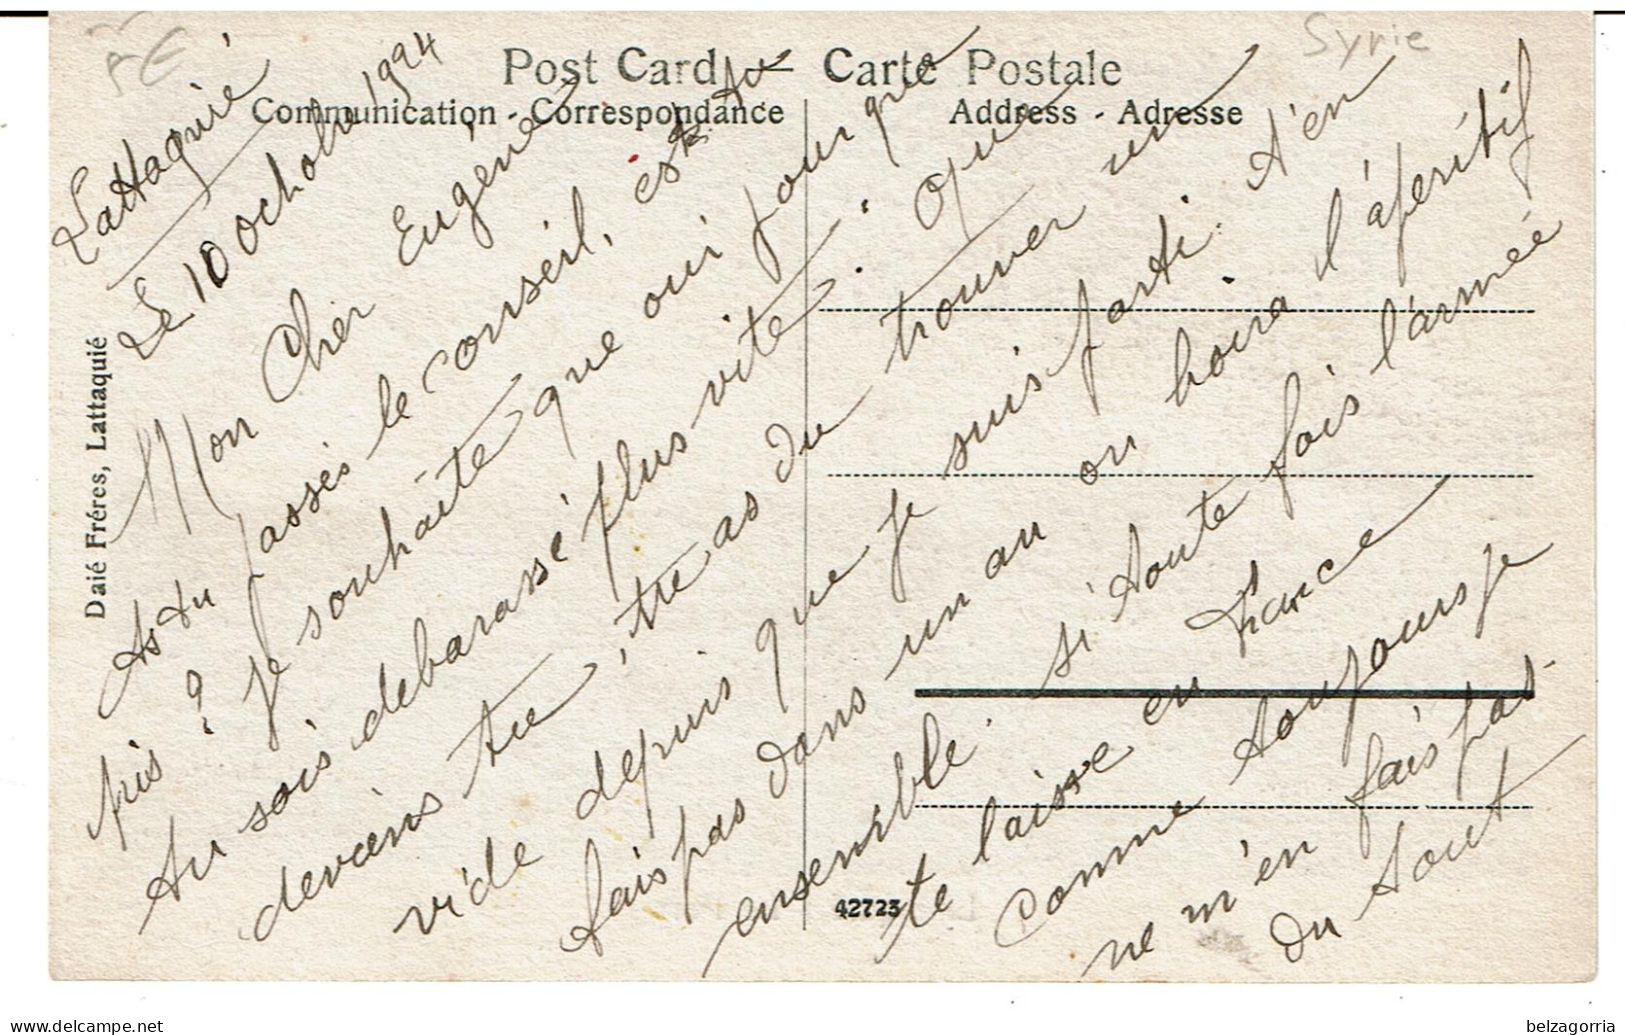 AE
Syrie
Post Card — Carte Postale
Communication - Correspondance
Address - Adresse
Daié Fréres, Lattaquié
42723
Lattaquié
Le 10 octobre 1924
Mon Cher Eugène
As tu passés le conseil, est tu
pris ? Je souhaite que oui pour que
tu sois debarassé plus vite. Que
deviens tu, tu as du trouver un
vide depuis que je suis parti. t'en
fais pas dans un an on boira l'áperitif
ensemble. si toute fois l'armée
te laisse en France
Comme toujours je
ne m'en fais pas
du tout
belzagorria.delcampe.net